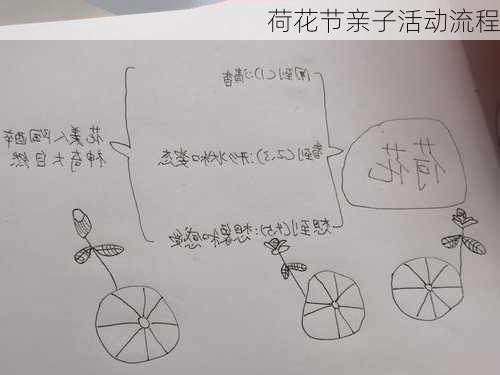 荷花节亲子活动流程
荷花
闻到(1):清香
看到(2、3):形状和姿态
想到(4、5):想象和感受
花美人陶醉
神奇大自然